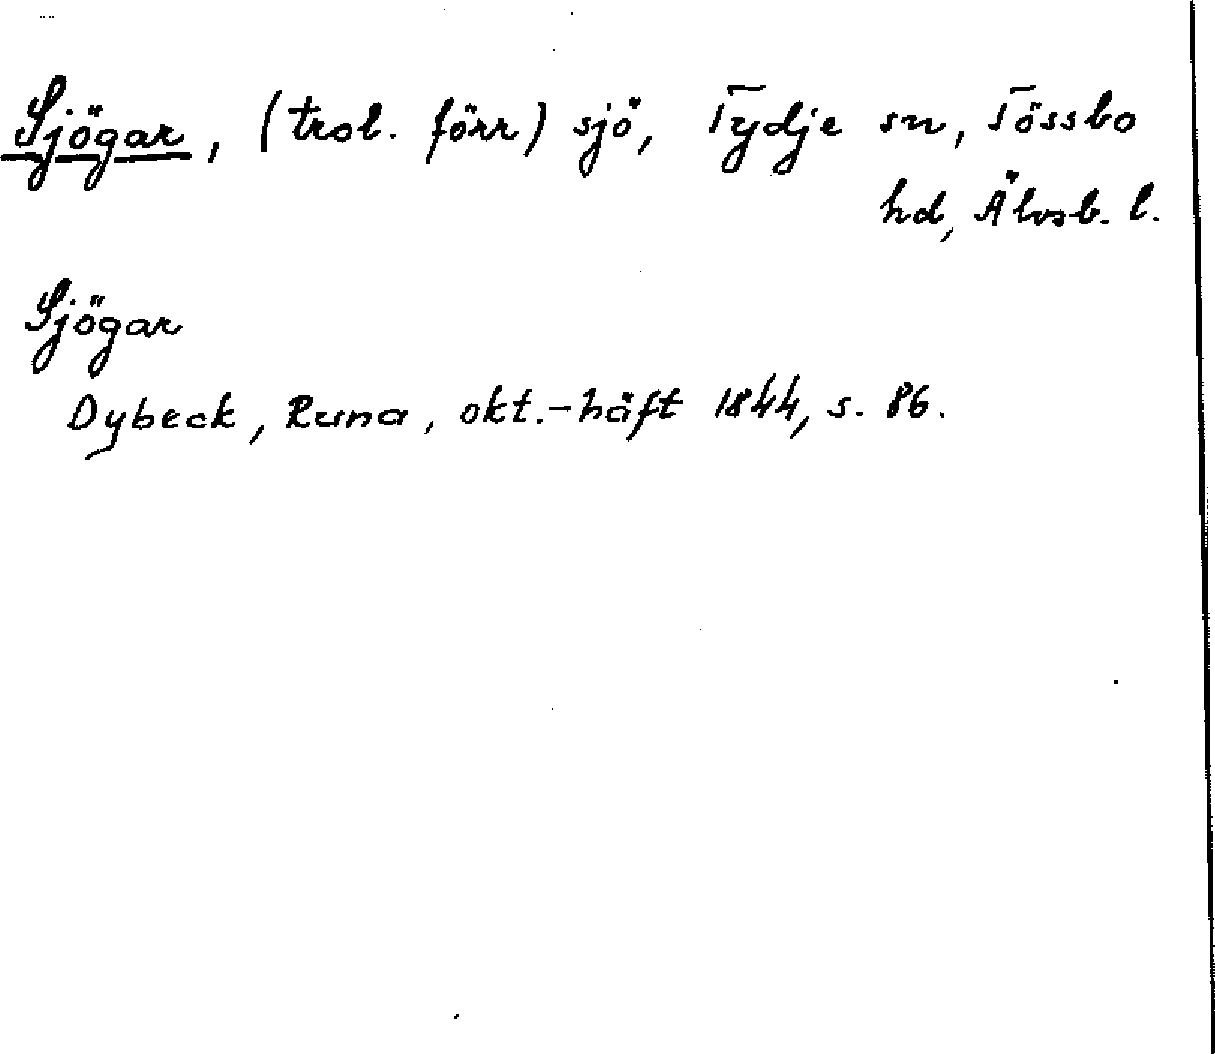 Sjögar, (trol. förr) sjö, Tydje sn, Tössbo
hd, Älvsb. l.
Sjögar
Dybeck, Runa, okt.-häft 1844, s. 86.